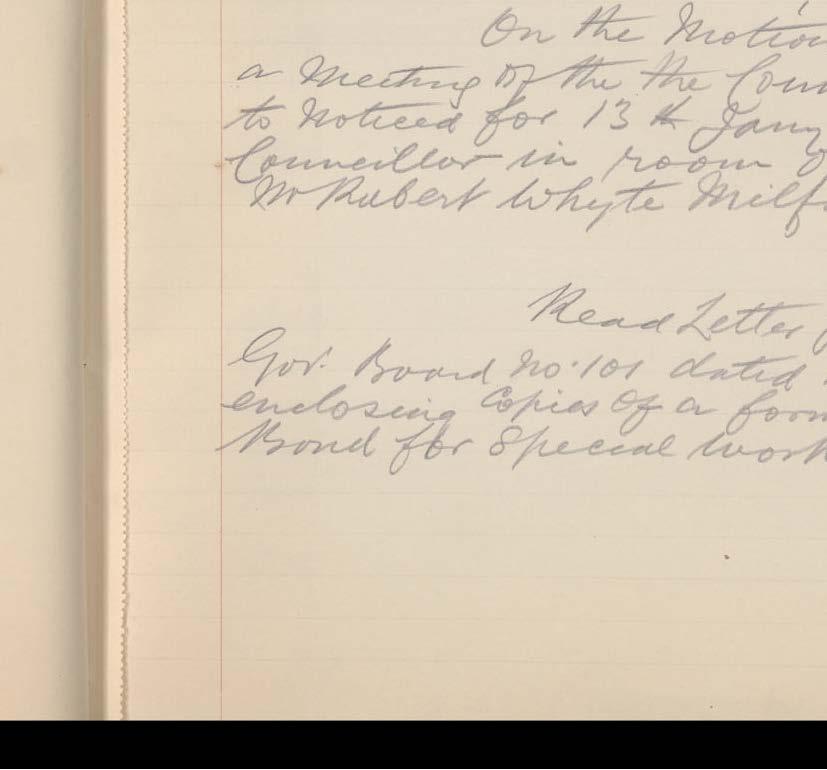 On the Motion
a Meeting of the the Coun
to Noticed for 13th Jany
Councillor in room o
Mr Robert Whyte Milf
Read Letter f
Gov. Board No. 101 dated
enclosing Copies of a form
Bond for Special work